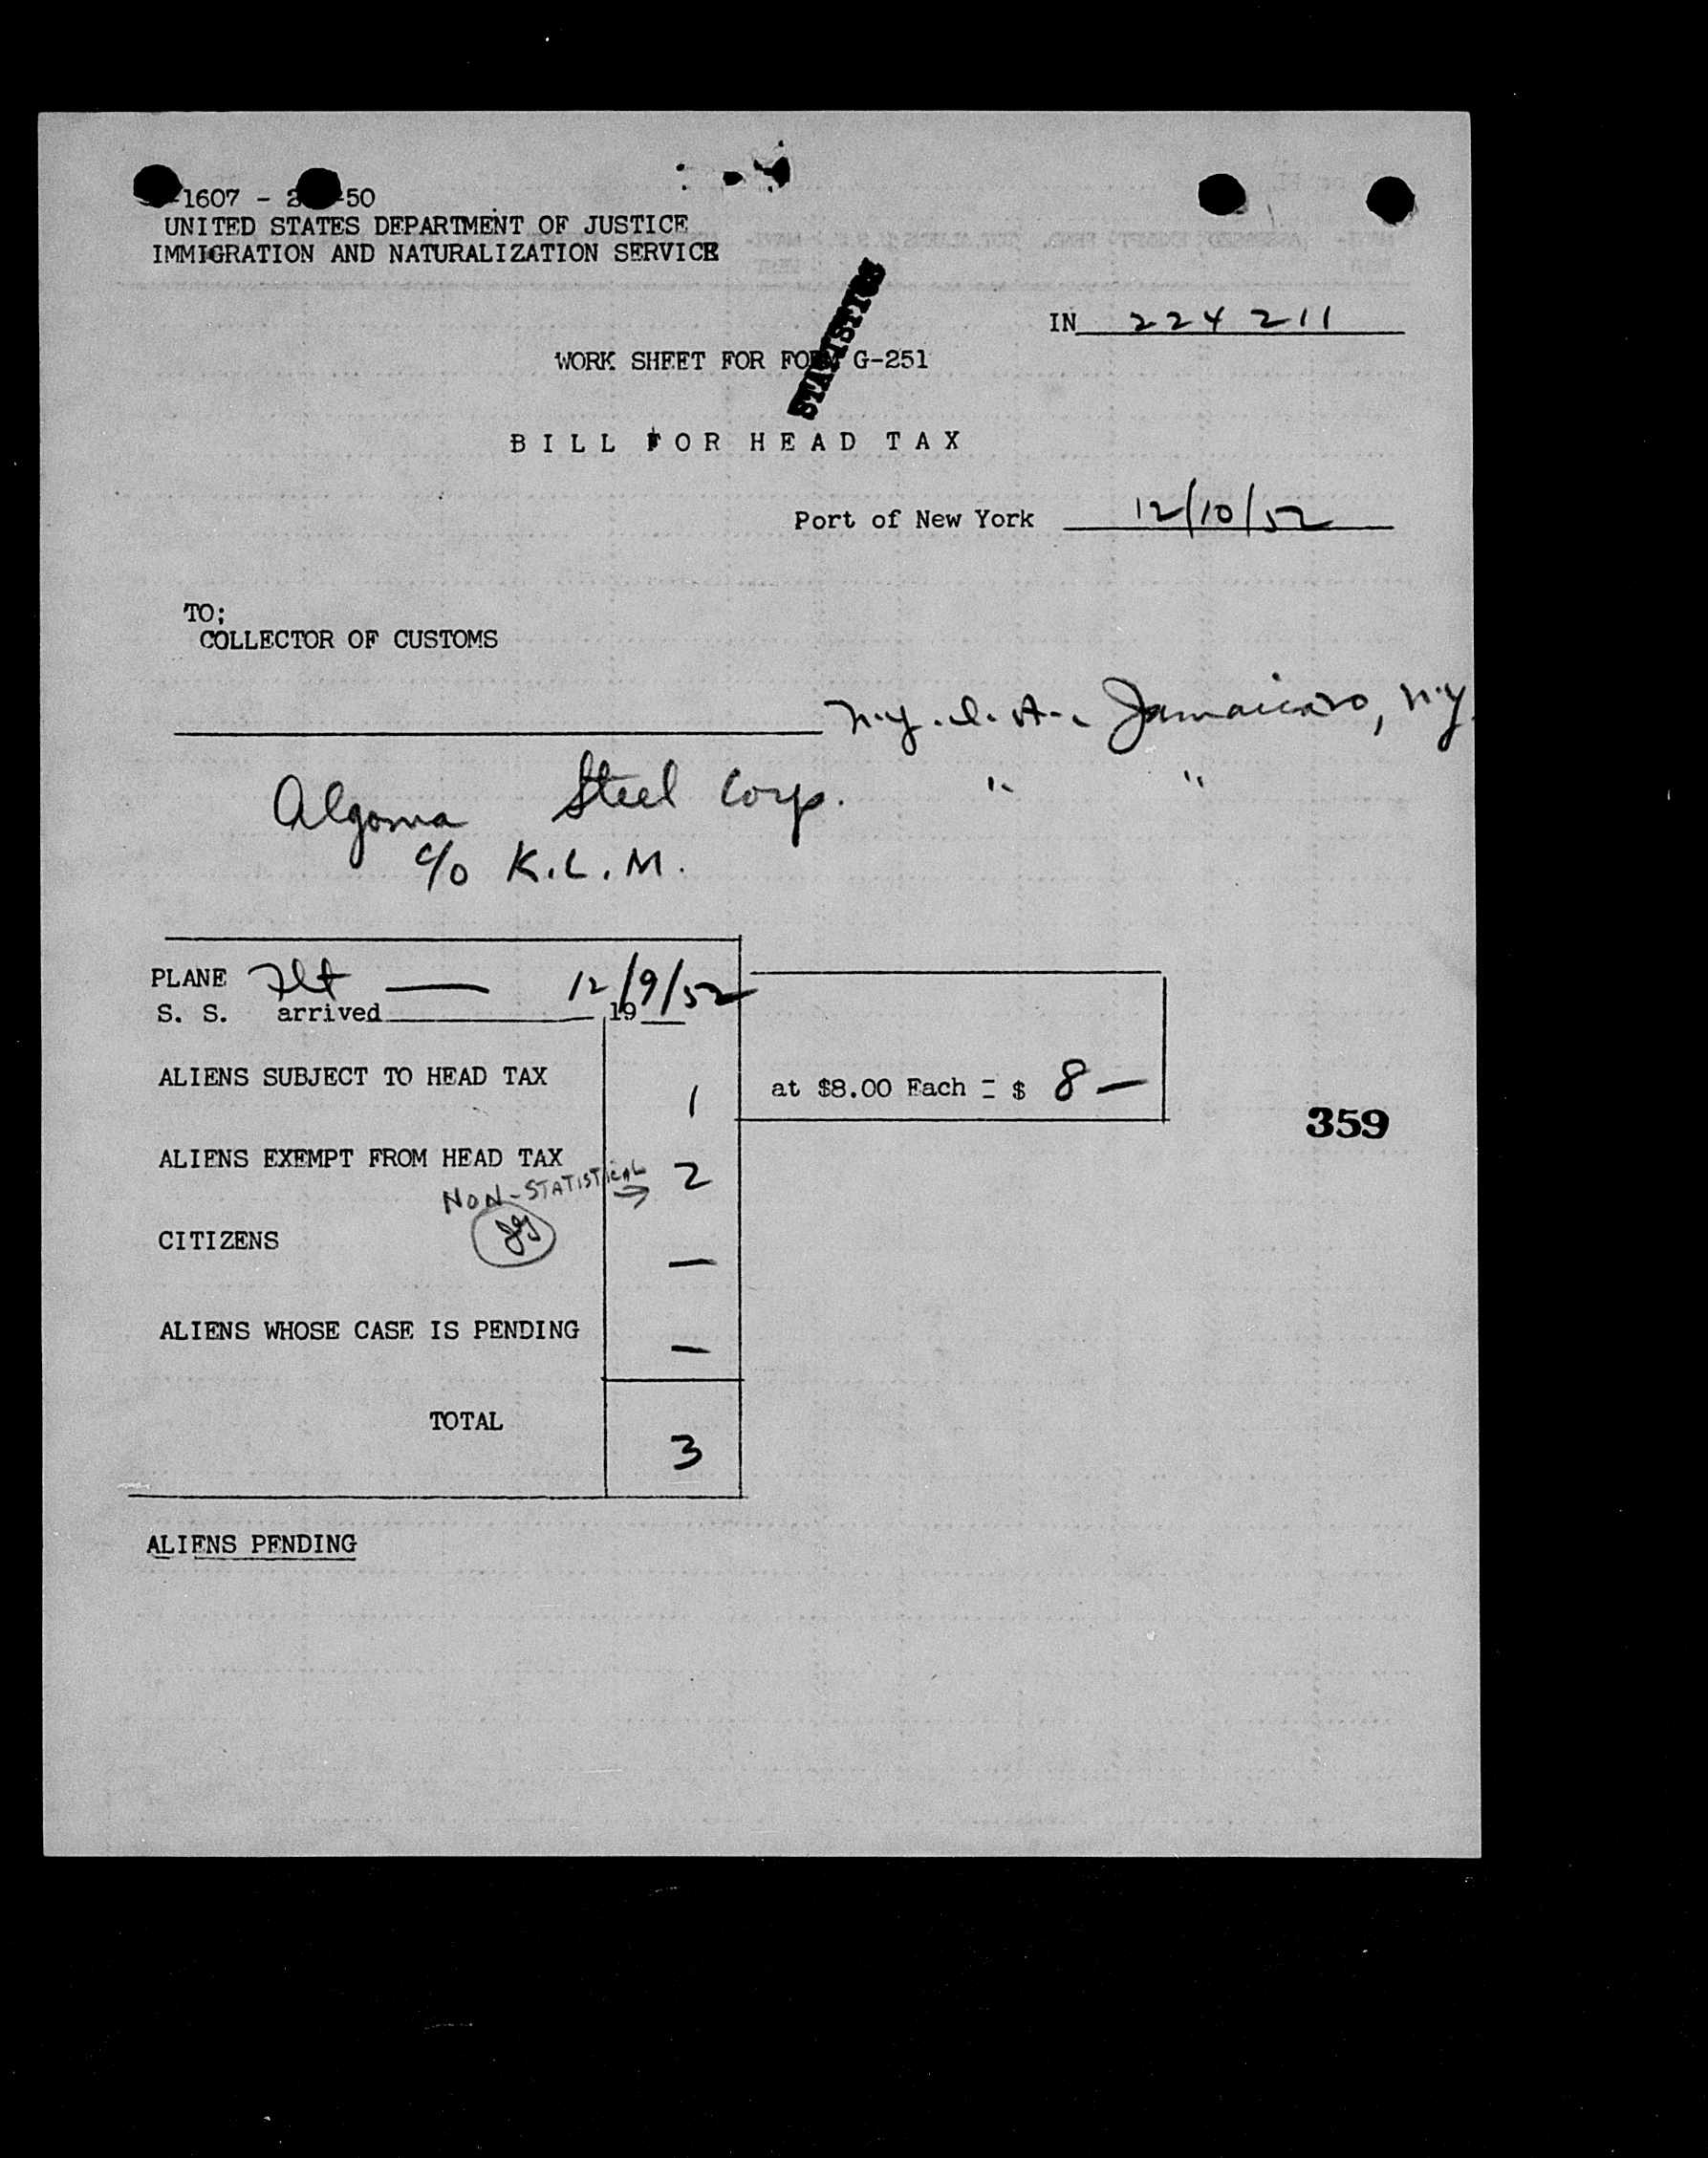 1607 - 2 -50
UNITED STATES DEPARTMENT OF JUSTICE
IMMIGRATION AND NATURALIZATION SERVICE
STATISTICS
IN 224 211
WORK SHEET FOR FORM G-251
BILL FOR HEAD TAX
Port of New York 12/10/52
TO;
COLLECTOR OF CUSTOMS
N.Y. I. A., Jamaica, N.Y.
Algoma Steel Corp. " "
c/o K.L.M.
PLANE Flt — 12/9/52
S. S. arrived 19
ALIENS SUBJECT TO HEAD TAX 1 at $8.00 Each = $ 8 —
359
ALIENS EXEMPT FROM HEAD TAX 2
NON-STATISTICAL →
CITIZENS —
ALIENS WHOSE CASE IS PENDING —
TOTAL 3
ALIENS PENDING